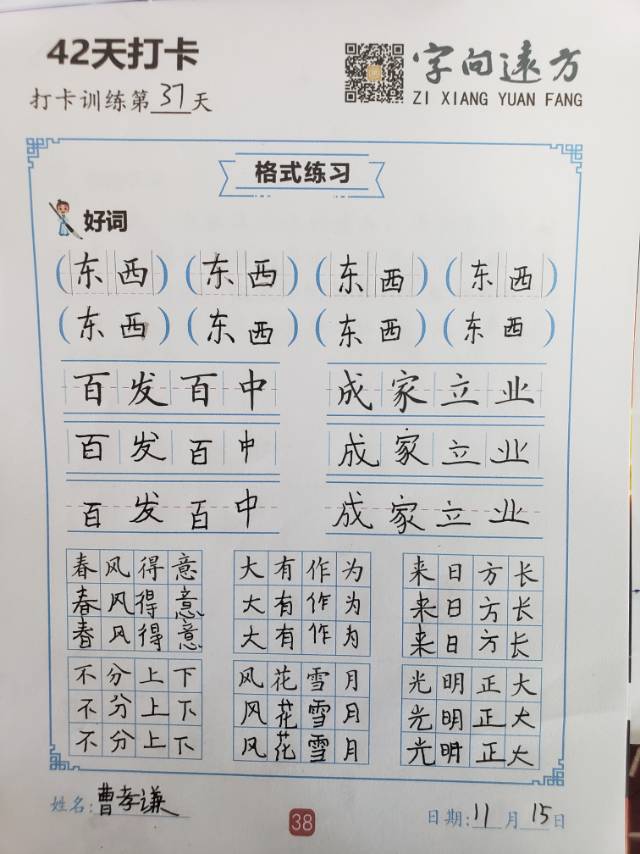 42天打卡
打卡训练第37天
字向远方
ZI XIANG YUAN FANG
格式练习
好词
(东西) (东西) (东西) (东西)
(东西) (东西) (东西) (东西)
百发百中 成家立业
百发百中 成家立业
百发百中 成家立业
春风得意 大有作为 来日方长
春风得意 大有作为 来日方长
春风得意 大有作为 来日方长
不分上下 风花雪月 光明正大
不分上下 风花雪月 光明正大
不分上下 风花雪月 光明正大
姓名:曹孝谦 38 日期:11月15日